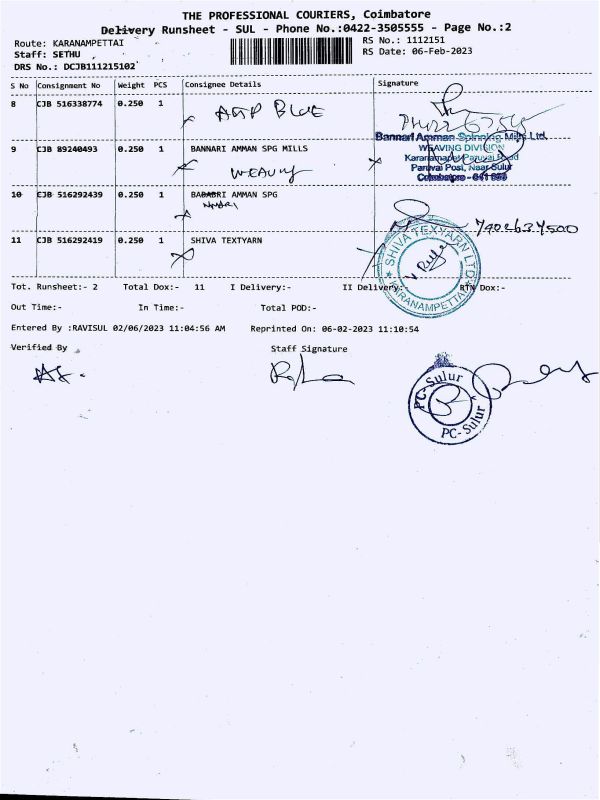 THE PROFESSIONAL COURIERS, Coimbatore
Delivery Runsheet - SUL - Phone No.:0422-3505555 - Page No.:2
Route: KARANAMPETTAI
Staff: SETHU
DRS No.: DCJB111215102
RS No.: 1112151
RS Date: 06-Feb-2023
S No Consignment No Weight PCS Consignee Details Signature
8 CJB 516338774 0.250 1 AGP BLUE
9 CJB B9240493 0.250 1 BANNARI AMMAN SPG MILLS
WEAVING
Bannari Amman Spinning Mills Ltd.
WEAVING DIVISION
Karanampet Paruvai Road
Paruvai Post, Near Sulur
Coimbatore -
10 CJB 516292439 0.250 1 BABABRI AMMAN SPG
11 CJB 516292419 0.250 1 SHIVA TEXTYARN
7402637500
SHIVA TEXYARN LTD
KARANAMPETTAI
Tot. Runsheet:- 2 Total Dox:- 11 I Delivery:- II Delivery:- RTN Dox:-
Out Time:- In Time:- Total POD:-
Entered By :RAVISUL 02/06/2023 11:04:56 AM Reprinted On: 06-02-2023 11:10:54
Verified By Staff Signature
PC-Sulur
PC-Sulur